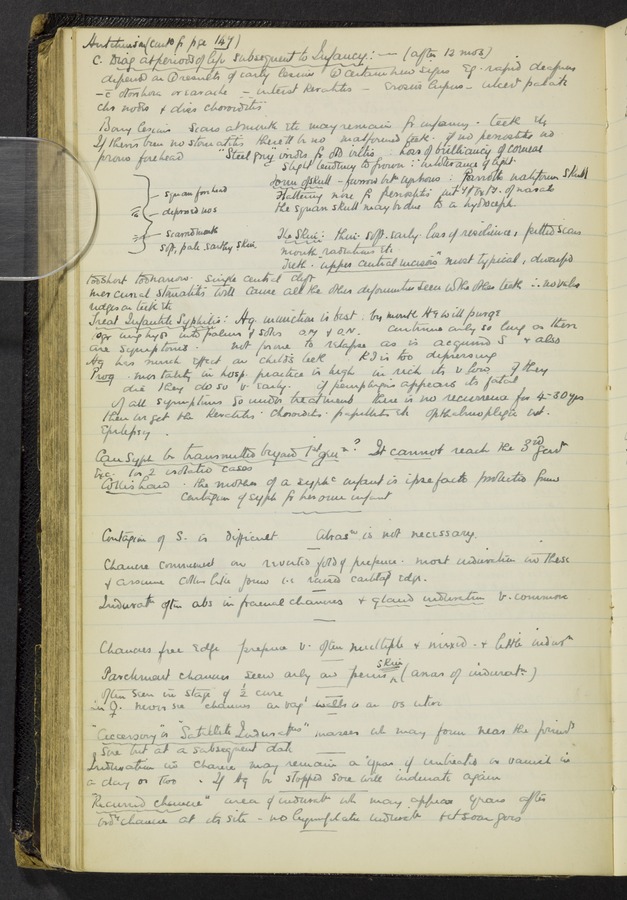 Hutchinson (cont fr pge 147)
C. Diag at periods of life subsequent to Infancy: — (after 12 mos)
depend on ① results of early lesions ② certain new signs Eg. rapid deafness
- c̄ otorrhœa or earache - interst Keratitis - Erosive lupus - ulcert palate
chr nodes & dissem choroiditis
Bony lesions Scars at mouth etc may remain fr infancy. teeth etc
If there's been no stomatitis there'll be no malformed teeth. if no periostitis no
prom forehead "Steel grey" irides fr old iritis Loss of brilliancy of corneæ
Slight tendency to frown ∵ intolerance of light
Form of skull - furrow
- square forehead
- depressed nose
Flattening more fr periostitis
the square skull may be due to a hydroceph.
- scarred mouth
- soft, pale earthy skin
The Skin: thin. soft. earthy. loss of resilience, pitted scars
mouth, radiations etc
Teeth: upper central incisors most typical, dwarfed
too short too narrow. single central cleft
mercurial stomatitis will cause all the other deformities seen in the other teeth ∴ no value
ridges on teeth etc
Treat Infantile Syphilis: Hg inunction is best. by mouth Hg will purge
ung hyd into palms & soles a.m & p.m. continue only so long as there
are symptoms. not prone to relapse as is acquired S & also
Hg has much effect on child's teeth KI is too depressing
Prog. mortality in hosp. practice is high in rich its v low, if they
die they do so v. early. if pemphigus appears its fatal
if all symptoms go under treatment there is no recurrence for 4-30 yrs
then we get the keratitis. choroiditis. ophthalmoplegia int.
Epilepsy.
Can Syph be transmitted beyond 1st genn? It cannot reach the 3rd gent
Exc. for 2 isolated cases
Colles' Law. the mother of a syphc infant is ipse facto protected from
contagion of syph fr her own infant
Contagion of S. is difficult Abrasn is not necessary.
Chancre commonest on reverted fold of prepuce. most induration in these
& assume collar like form i.e raised cartilag edge.
Induratn often abs in frænal chancres & gland induration v. common
Chancres free edge prepuce v. often multiple & mixed. & little indurn
Parchment chancres seen only on penis skin (areas of induratn)
often seen in stage of ½ cure
in ♀. never see chancres on vag walls or on os uteri
"accessory" or "Satellite Indurations" masses wh may form near the primy
Sore but at a subsequent date
Induration in chancre may remain a year if untreated or vanish in
a day or two. If Hg be stopped sore will indurate again
"Recurred chancre" area of induratn wh may appear years after
chancre at its site - no lymphatic induratn but soon goes